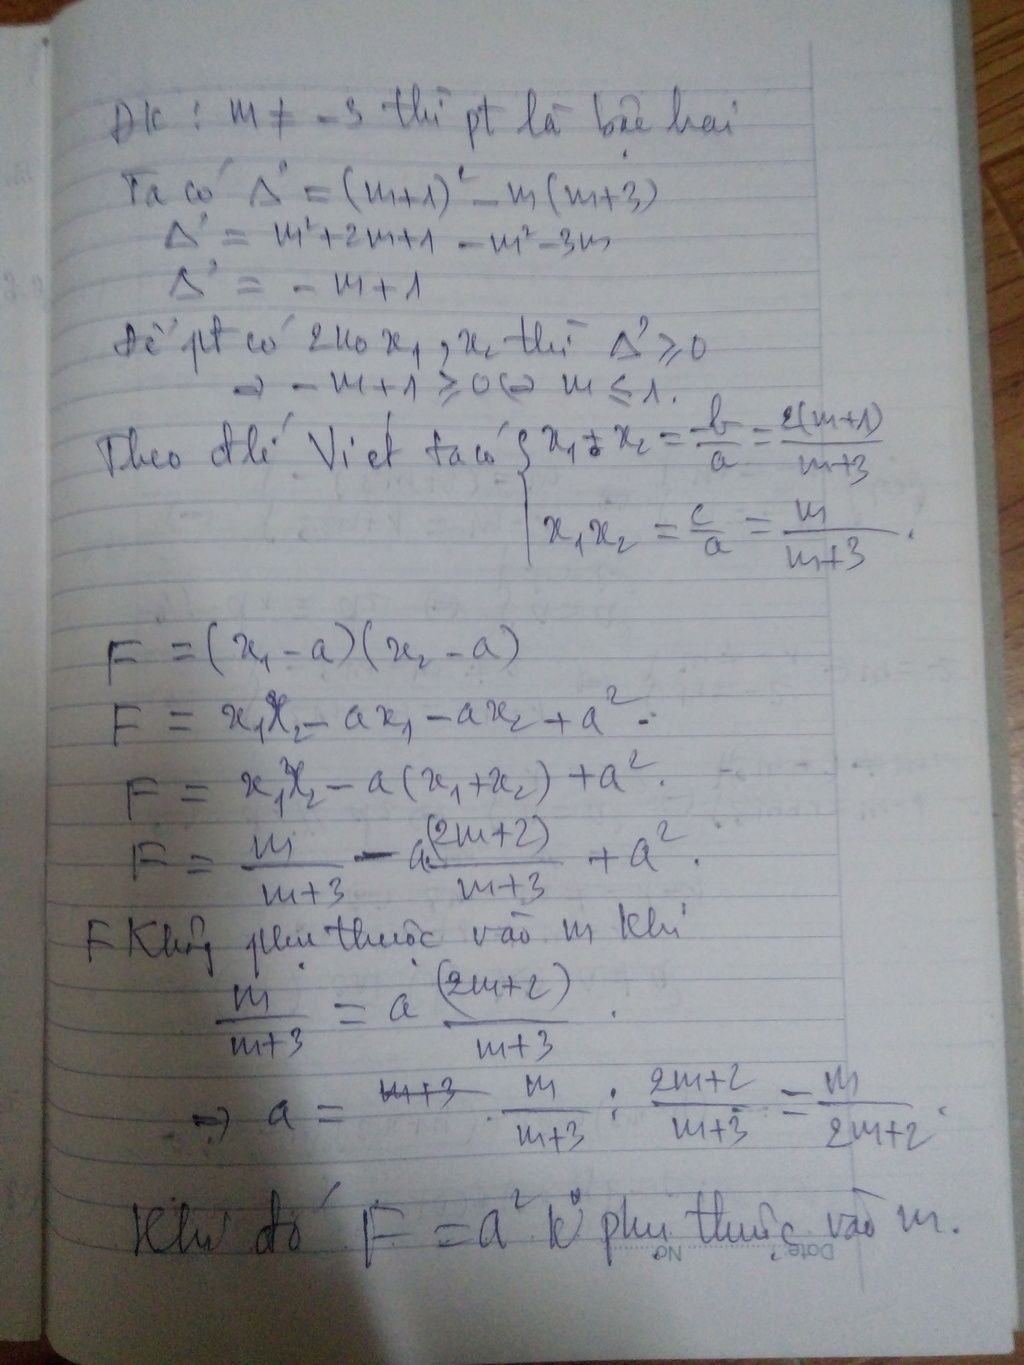 ĐK : m ≠ -3 thì pt là bậc hai
Ta có Δ' = (m+1)² - m(m+3)
Δ' = m²+2m+1 - m² -3m
Δ' = - m +1
Để pt có 2no x₁, x₂ thì Δ' ≥ 0
⇒ - m+1 ≥ 0 ⇔ m ≤ 1.
Theo đlí Viét ta có { x₁ + x₂ = -b/a = 2(m+1)/(m+3)
x₁x₂ = c/a = m/(m+3) .
F = (x₁ - a)(x₂ - a)
F = x₁x₂ - ax₁ - ax₂ + a².
F = x₁x₂ - a(x₁+x₂) + a².
F = m/(m+3) - a(2m+2)/(m+3) + a².
F Không phụ thuộc vào m Khi
m/(m+3) = a (2m+2)/(m+3) .
⇒ a = m/(m+3) : (2m+2)/(m+3) = m/(2m+2) .
Khi đó F = a² k° phụ thuộc vào m.
Date No